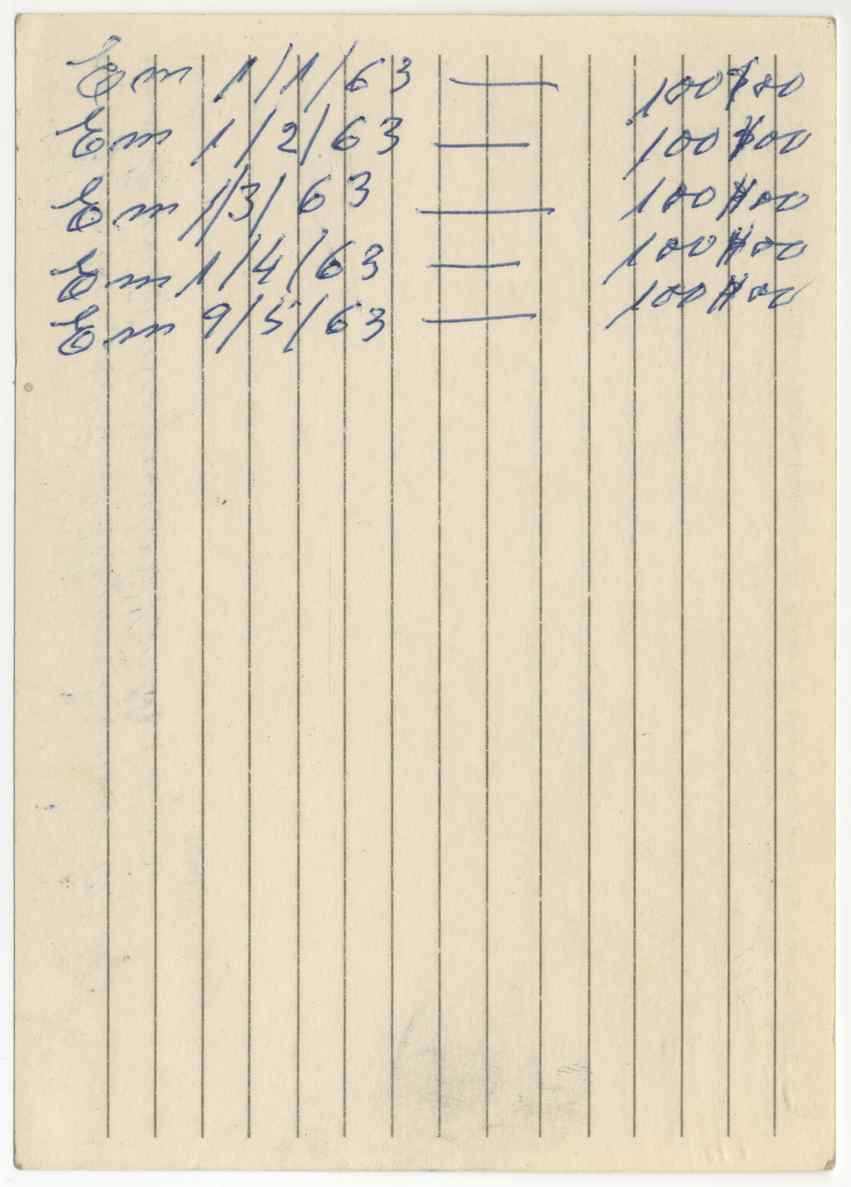 Em 1/1/63 — 100$00
Em 1/2/63 — 100$00
Em 1/3/63 — 100$00
Em 1/4/63 — 100$00
Em 9/5/63 — 100$00